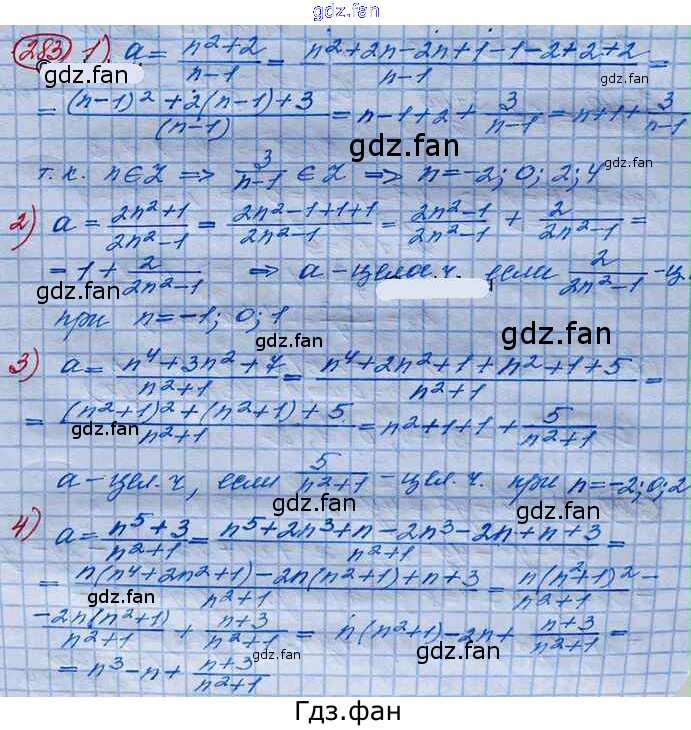 gdz.fan
283) 1) a = (n²+2)/(n-1) = (n²+2n-2n+1-1-2+2+2)/(n-1) =
gdz.fan gdz.fan
= ((n-1)²+2(n-1)+3)/(n-1) = n-1+2+3/(n-1) = n+1+3/(n-1)
gdz.fan
т.к. n∈Z ⇒ 3/(n-1) ∈ Z ⇒ n=-2; 0; 2; 4
gdz.fan
2) a = (2n²+1)/(2n²-1) = (2n²-1+1+1)/(2n²-1) = (2n²-1)/(2n²-1) + 2/(2n²-1) =
= 1 + 2/(2n²-1) ⇒ a - целое ч. если 2/(2n²-1) - ц.
gdz.fan gdz.fan
при n=-1; 0; 1
gdz.fan gdz.fan
3) a = (n⁴+3n²+7)/(n²+1) = (n⁴+2n²+1+n²+1+5)/(n²+1) =
= ((n²+1)²+(n²+1)+5)/(n²+1) = n²+1+1+5/(n²+1)
gdz.fan gdz.fan
a - цел. ч, если 5/(n²+1) - цел. ч. при n=-2; 0; 2
gdz.fan gdz.fan
4) a = (n⁵+3)/(n²+1) = (n⁵+2n³+n-2n³-2n+n+3)/(n²+1) =
= (n(n⁴+2n²+1)-2n(n²+1)+n+3)/(n²+1) = n(n²+1)²/(n²+1) -
gdz.fan gdz.fan
-2n(n²+1)/(n²+1) + (n+3)/(n²+1) = n(n²+1)-2n+(n+3)/(n²+1) =
gdz.fan gdz.fan
= n³-n+(n+3)/(n²+1)
gdz.fan
Гдз.фан